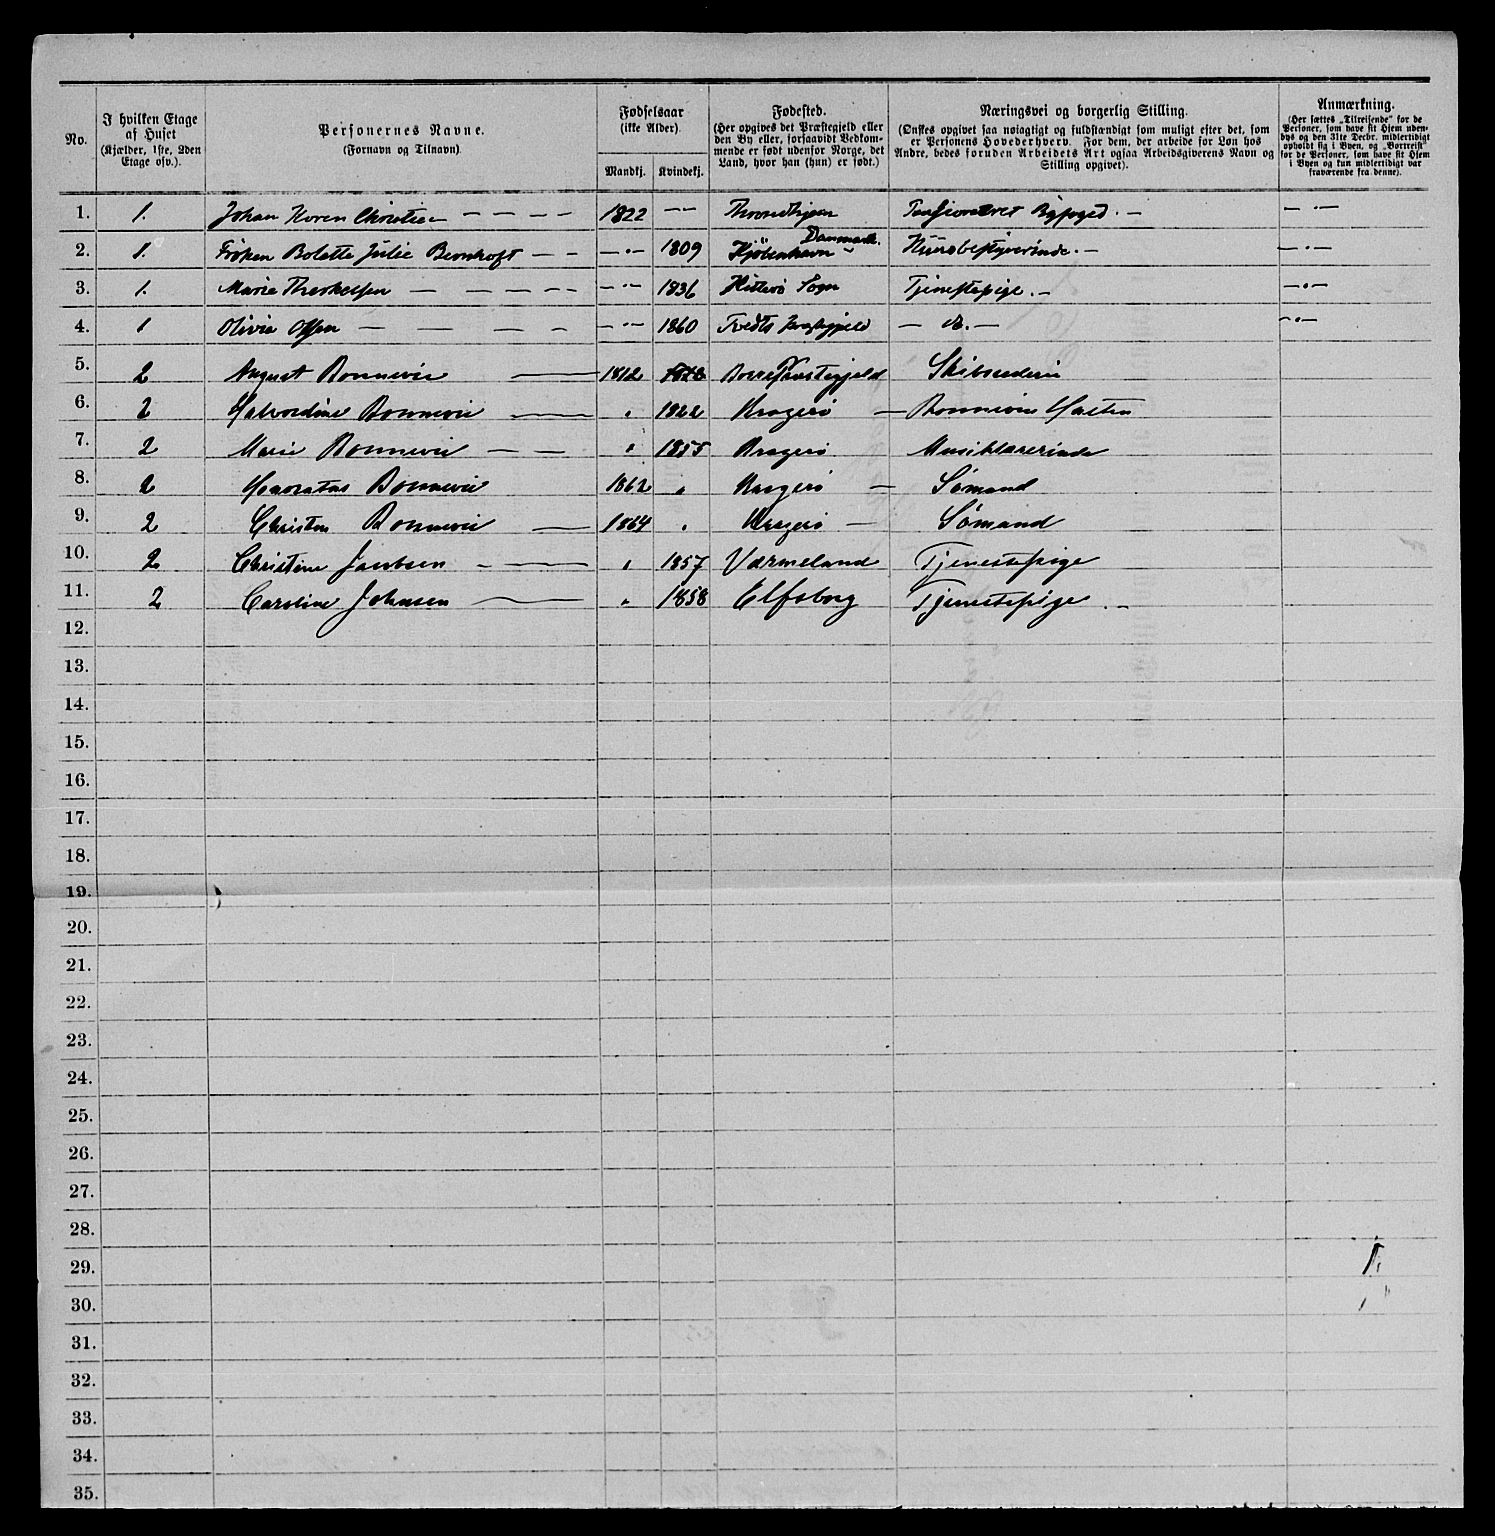 No.
I hvilken Etage af Huset (Kjælder, 1ste, 2den Etage osv.).
Personernes Navne. (Fornavn og Tilnavn)
Fødselsaar (ikke Alder).
Mandkj. Kvindekj.
Fødested. (Her opgives det Præstegjeld eller den By eller, forsaavidt Vedkommende er født udenfor Norge, det Land, hvor han (hun) er født.)
Næringsvei og borgerlig Stilling. (Ønskes opgivet saa nøiagtigt og fuldstændigt som muligt efter det, som er Personens Hovederhverv. For dem, der arbeide for Løn hos Andre, bedes foruden Arbeidets Art ogsaa Arbeidsgiverens Navn og Stilling opgivet).
Anmærkning. (Her sættes „Tilreisende" for de Personer, som have sit Hjem udenbys og den 31te Decbr. midlertidigt opholdt sig i Byen, og „Bortreist" for de Personer, som have sit Hjem i Byen og kun midlertidigt var fraværende fra denne).
1. 1. Johan Koren Christie — — — — 1822 — — Throndhjem Pensioneret Byfoged. — — " —
2. 1. Frøken Bolette Julie Bernhoft — — — " — 1809 Kjøbenhavn Danmark. Huusbestyrerinde. — — " —
3. 1. Marie Therkelsen — — — — — — " — 1836 Hitterø Sogn Tjenestepige. — — " —
4. 1 Olivia Olsen — — — — — " — 1860 Tvedts Præstegjeld — do. — — " —
5. 2 August Bonnevie — 1812 Borre Præstegjeld Skibsrederi
6. 2 Halvordine Bonnevie — " 1822 Kragerø — Bonnevies Hustru
7. 2 Marie Bonnevie — — " 1855 Kragerø Musiklærerinde
8. 2 Honoratus Bonnevie 1862 " Kragerø — Sømand
9. 2 Christen Bonnevie — 1864 " Kragerø — Sømand
10. 2 Christine Jacobsen — — " 1857 Værmeland Tjenestepige
11. 2 Caroline Johnsen — " 1858 Elfsborg Tjenestepige . —
12.
13.
14.
15.
16.
17.
18.
19.
20.
21.
22.
23.
24.
25.
26.
27.
28.
29.
30.
31.
32.
33.
34.
35.